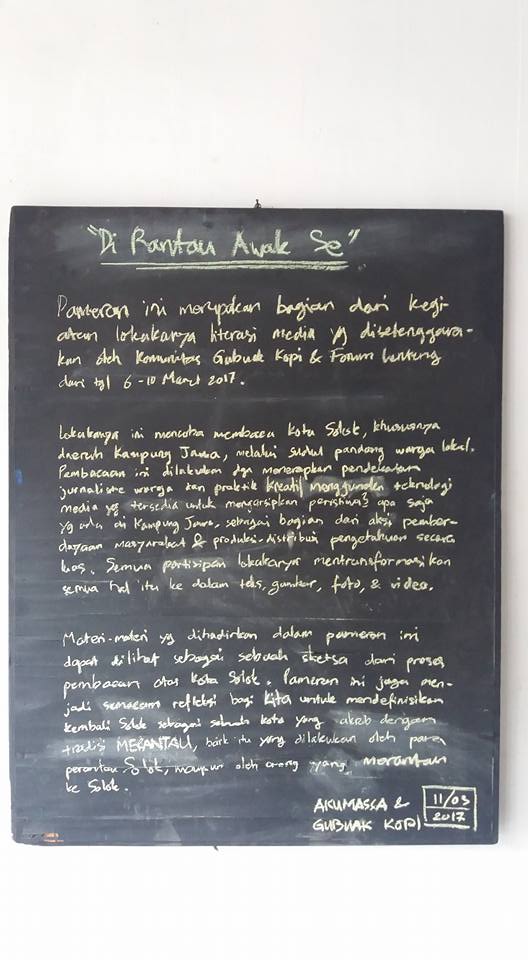 "Di Rantau Awak Se"
Pameran ini merupakan bagian dari kegi-
atan lokakarya literasi media yg diselenggara-
kan oleh Komunitas Gubuak Kopi & Forum Lenteng
dari tgl 6-10 Maret 2017.
Lokakarya ini mencoba membaca Kota Solok, khususnya
daerah Kampung Jawa, melalui sudut pandang warga lokal.
Pembacaan ini dilakukan dgn menerapkan pendekatan
jurnalisme warga dan praktik kreatif menggunakan teknologi
media yg tersedia untuk mengarsipkan peristiwa2 apa saja
yg ada di Kampung Jawa, sebagai bagian dari aksi pember-
dayaan masyarakat & produksi-distribusi pengetahuan secara
luas. Semua partisipan lokakarya mentransformasikan
semua hal itu ke dalam teks, gambar, foto, & video.
Materi-materi yg dihadirkan dalam pameran ini
dapat dilihat sebagai sebuah sketsa dari proses
pembacaan atas Kota Solok. Pameran ini juga men-
jadi semacam refleksi bagi kita untuk mendefinisikan
kembali Solok sebagai sebuah kota yang akrab dengan
tradisi MERANTAU, baik itu yang dilakukan oleh para
perantau Solok, maupun oleh orang yang merantau
ke Solok.
AKUMASSA &
GUBUAK KOPI
11/03
2017